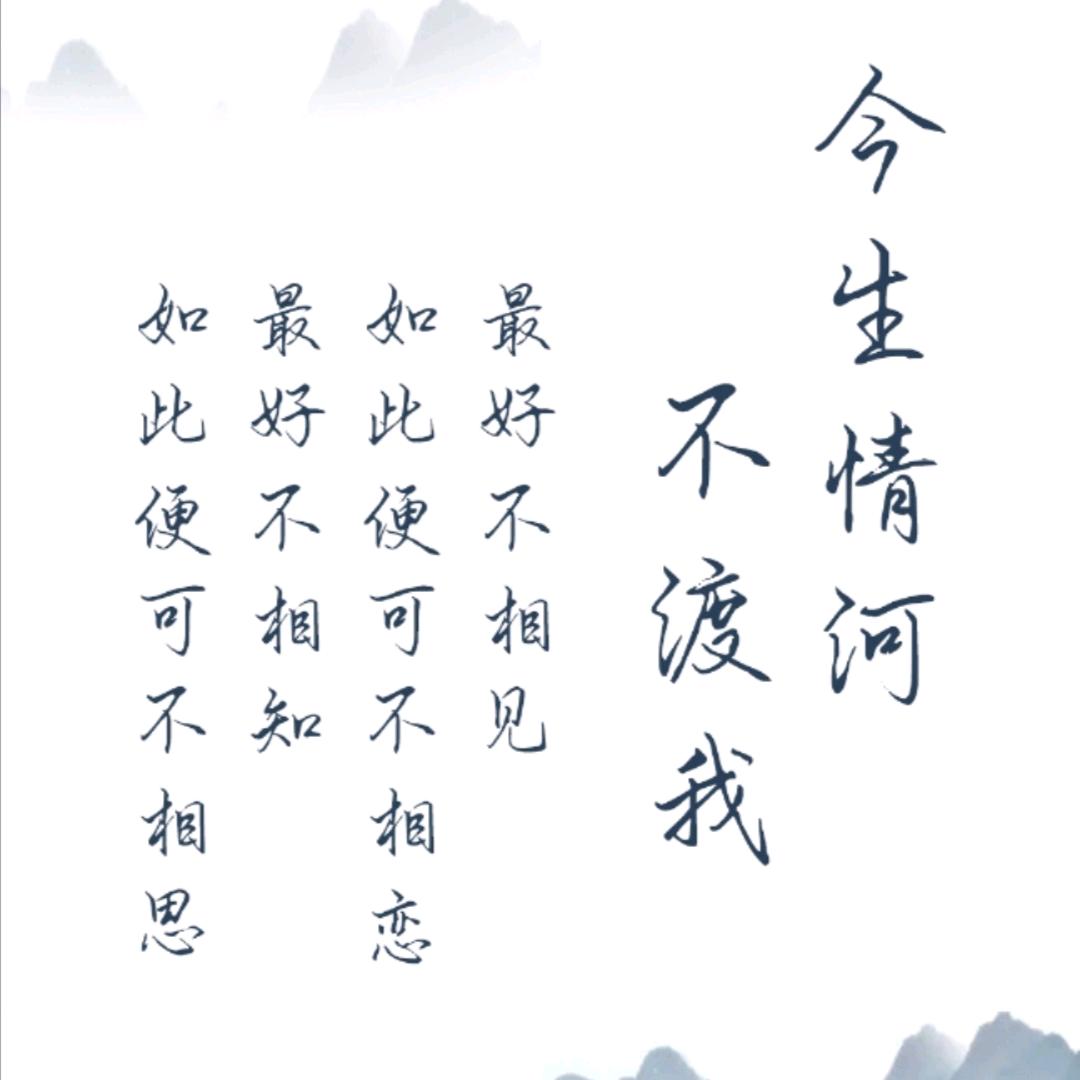 今生情河
不渡我
最好不相见
如此便可不相恋
最好不相知
如此便可不相思